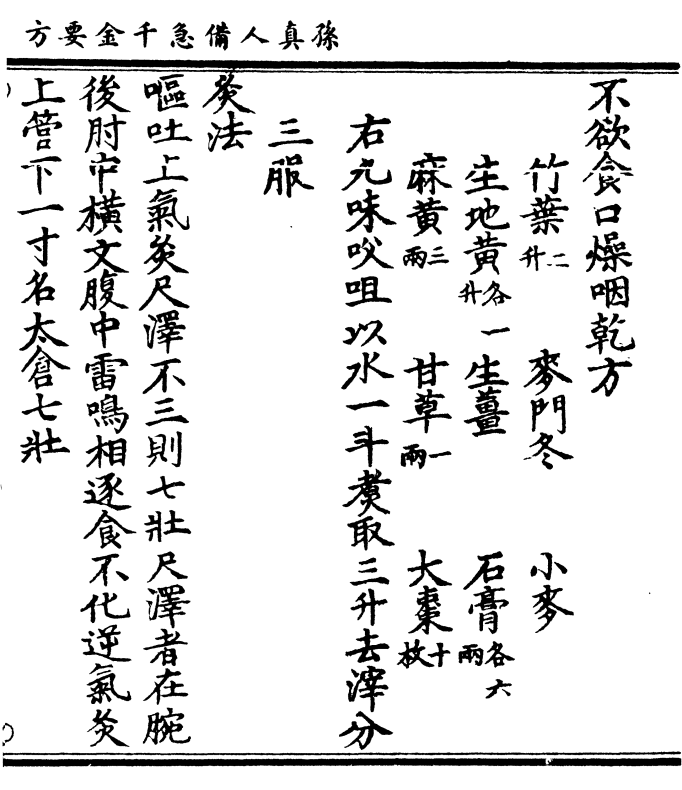 孫真人備急千金要方
不欲食口燥咽乾方
竹葉二升 麥門冬 小麥
生地黃各一升 生薑 石膏各六兩
麻黃三兩 甘草一兩 大棗十枚
右九味㕮咀以水一斗煑取三升去滓分
三服
灸法
嘔吐上氣灸尺澤不三則七壯尺澤者在腕
後肘中橫文腹中雷鳴相逐食不化逆氣灸
上管下一寸名太倉七壯